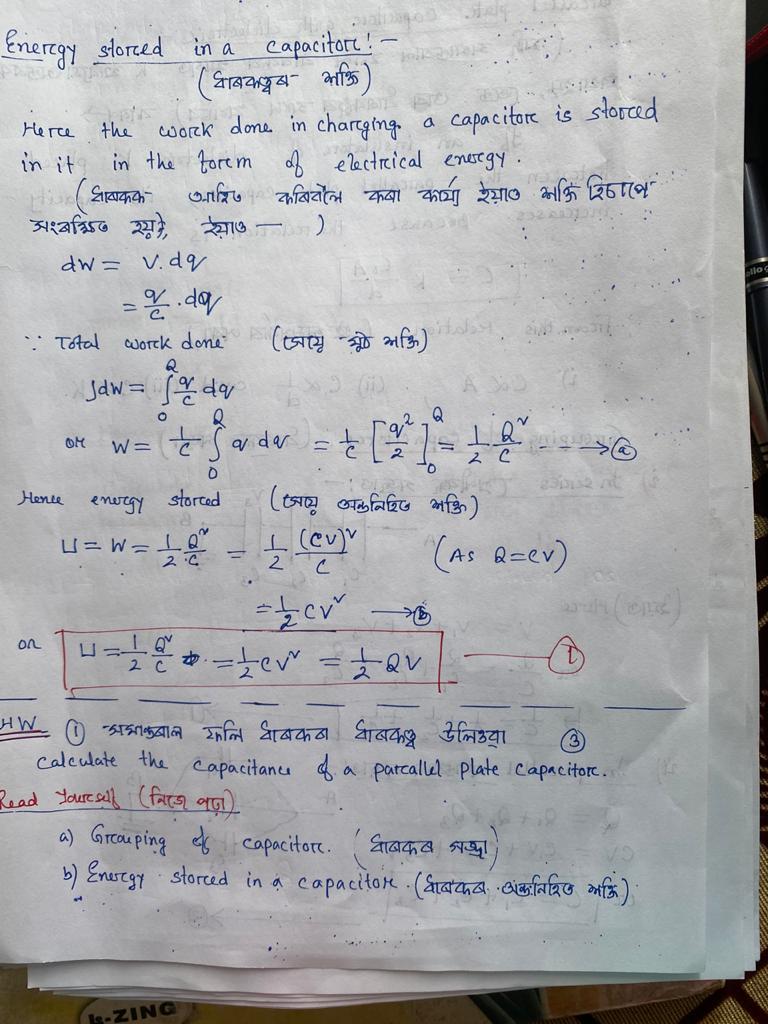 Energy stored in a capacitor:-
(ধাৰকত্বৰ শক্তি)
Here the work done in charging a capacitor is stored
in it in the form of electrical energy.
(ধাৰকক আহিত কৰিবলৈ কৰা কাৰ্য্য ইয়াত শক্তি হিচাপে
সংৰক্ষিত হয়, ইয়াত — )
dW = V.dq
= q/c . dq
∵ Total work done (সেয়ে মুঠ শক্তি)
∫dW = ∫₀^Q q/c dq
or W = 1/c ∫₀^Q q dq = 1/c [q²/2]₀^Q = 1/2 Q²/c ---→ⓐ
Hence energy stored (সেয়ে অন্তনিহিত শক্তি)
U = W = 1/2 Q²/c = 1/2 (CV)²/C (As Q=CV)
= 1/2 CV² →ⓑ
or U = 1/2 Q²/C = 1/2 CV² = 1/2 QV — ①
HW ① সমান্তৰাল ফলি ধাৰকৰ ধাৰকত্ব উলিওৱা ③
calculate the capacitance of a parallel plate capacitor.
Read Yourself (নিজে পঢ়া)
a) Grouping of capacitor. (ধাৰকৰ সজ্জা)
b) Energy stored in a capacitor. (ধাৰকৰ অন্তনিহিত শক্তি)
k-ZING